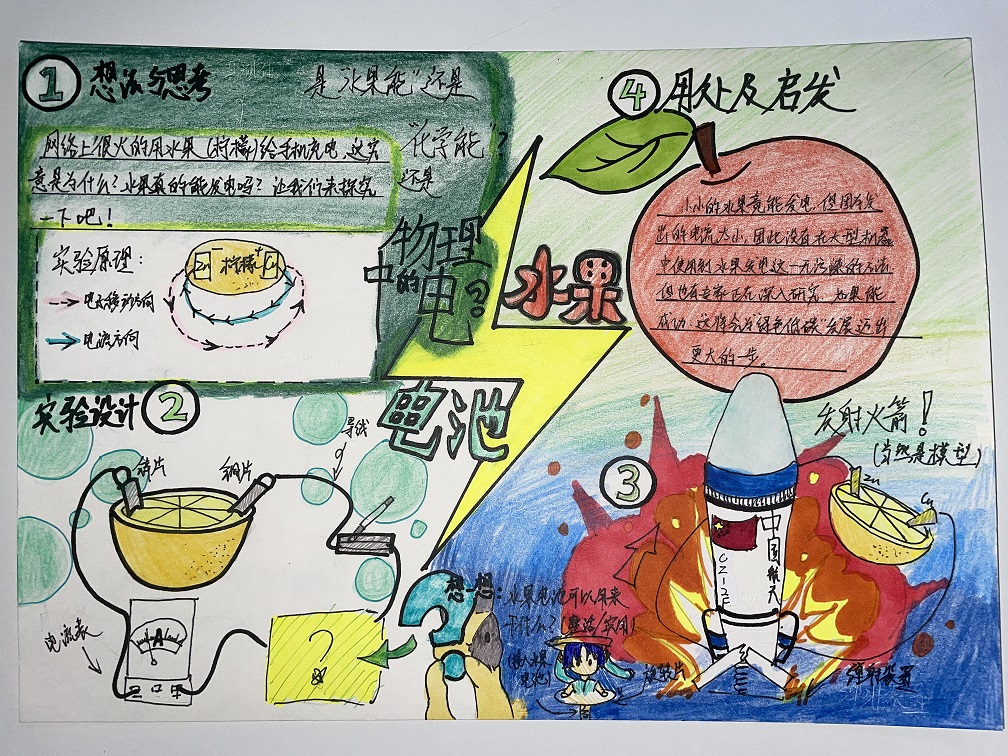 1 想法与思考
是"水果能"还是
"化学能"?
还是
网络上很火的用水果(柠檬)给手机充电,这究
竟是为什么?水果真的能发电吗?让我们来探究
一下吧!
实验原理:
Zn 柠檬 Cu
- +
电子移动方向
电流方向
物理
中的
电?
水果
电池
实验设计 2
锌片
铜片
导线
A
电流表
?
想一想:水果电池可以用来
干什么?(整活/实用)
(接入水果
电池)
旋转片
3
发射火箭!
(当然是模型)
Zn
Cu
中国航天
CZ-1
弹射装置
4 用处及启发
小小的水果竟能发电,但因其发
出的电流太小,因此没有在大型机器
中使用到水果发电这一无污染的方法
但也有专家正在深入研究,如果能
成功,这将会为绿色低碳发展迈出
更大的一步。